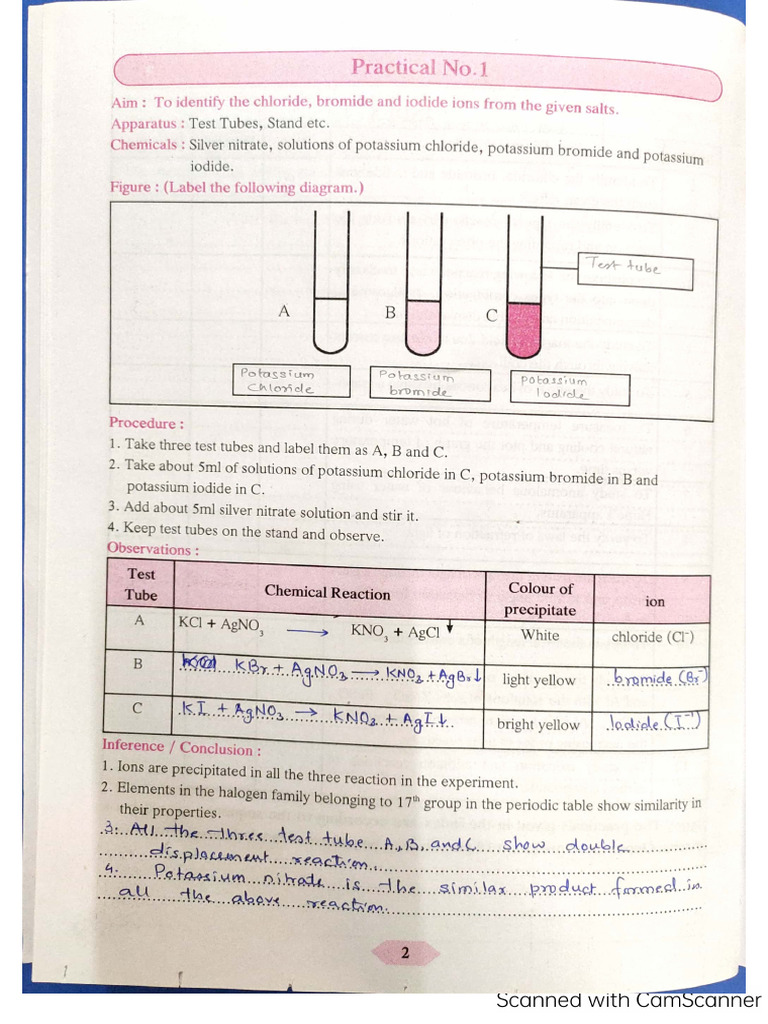 Practical No.1
Aim : To identify the chloride, bromide and iodide ions from the given salts.
Apparatus : Test Tubes, Stand etc.
Chemicals : Silver nitrate, solutions of potassium chloride, potassium bromide and potassium
iodide.
Figure : (Label the following diagram.)
Test tube
A B C
Potassium
Chloride
Potassium
bromide
potassium
Iodide
Procedure :
1. Take three test tubes and label them as A, B and C.
2. Take about 5ml of solutions of potassium chloride in C, potassium bromide in B and
potassium iodide in C.
3. Add about 5ml silver nitrate solution and stir it.
4. Keep test tubes on the stand and observe.
Observations :
Test
Tube
Chemical Reaction
Colour of
precipitate
ion
A KCl + AgNO₃ ⟶ KNO₃ + AgCl ↓ White chloride (Cl⁻)
B KBr + AgNO₃ ⟶ KNO₃ + AgBr↓ light yellow bromide (Br⁻)
C KI + AgNO₃ ⟶ KNO₃ + AgI↓ bright yellow Iodide (I⁻)
Inference / Conclusion :
1. Ions are precipitated in all the three reaction in the experiment.
2. Elements in the halogen family belonging to 17th group in the periodic table show similarity in
their properties.
3. All the three test tube A, B, and C show double
displacement reaction.
4. Potassium nitrate is the similar product formed in
all the above reaction.
2
Scanned with CamScanner